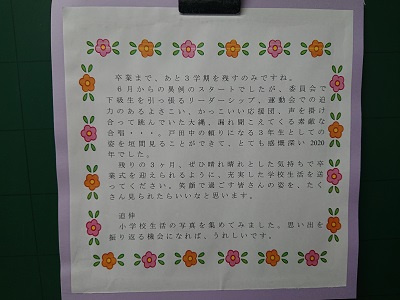 卒業まで、あと3学期を残すのみですね。
6月からの異例のスタートでしたが、委員会で
下級生を引っ張るリーダーシップ、運動会での迫
力のあるよさこい、かっこいい応援団、声を掛け
合って跳んでいた大縄、漏れ聞こえてくる素敵な
合唱・・・。戸田中の頼りになる3年生としての
姿を垣間見ることができて、とても感慨深い2020
年でした。
残りの3ヶ月、ぜひ晴れ晴れとした気持ちで卒
業式を迎えられるように、充実した学校生活を送
ってください。笑顔で過ごす皆さんの姿を、たく
さん見られたらいいなと思います。
追伸
小学校生活の写真を集めてみました。思い出を
振り返る機会になれば、うれしいです。